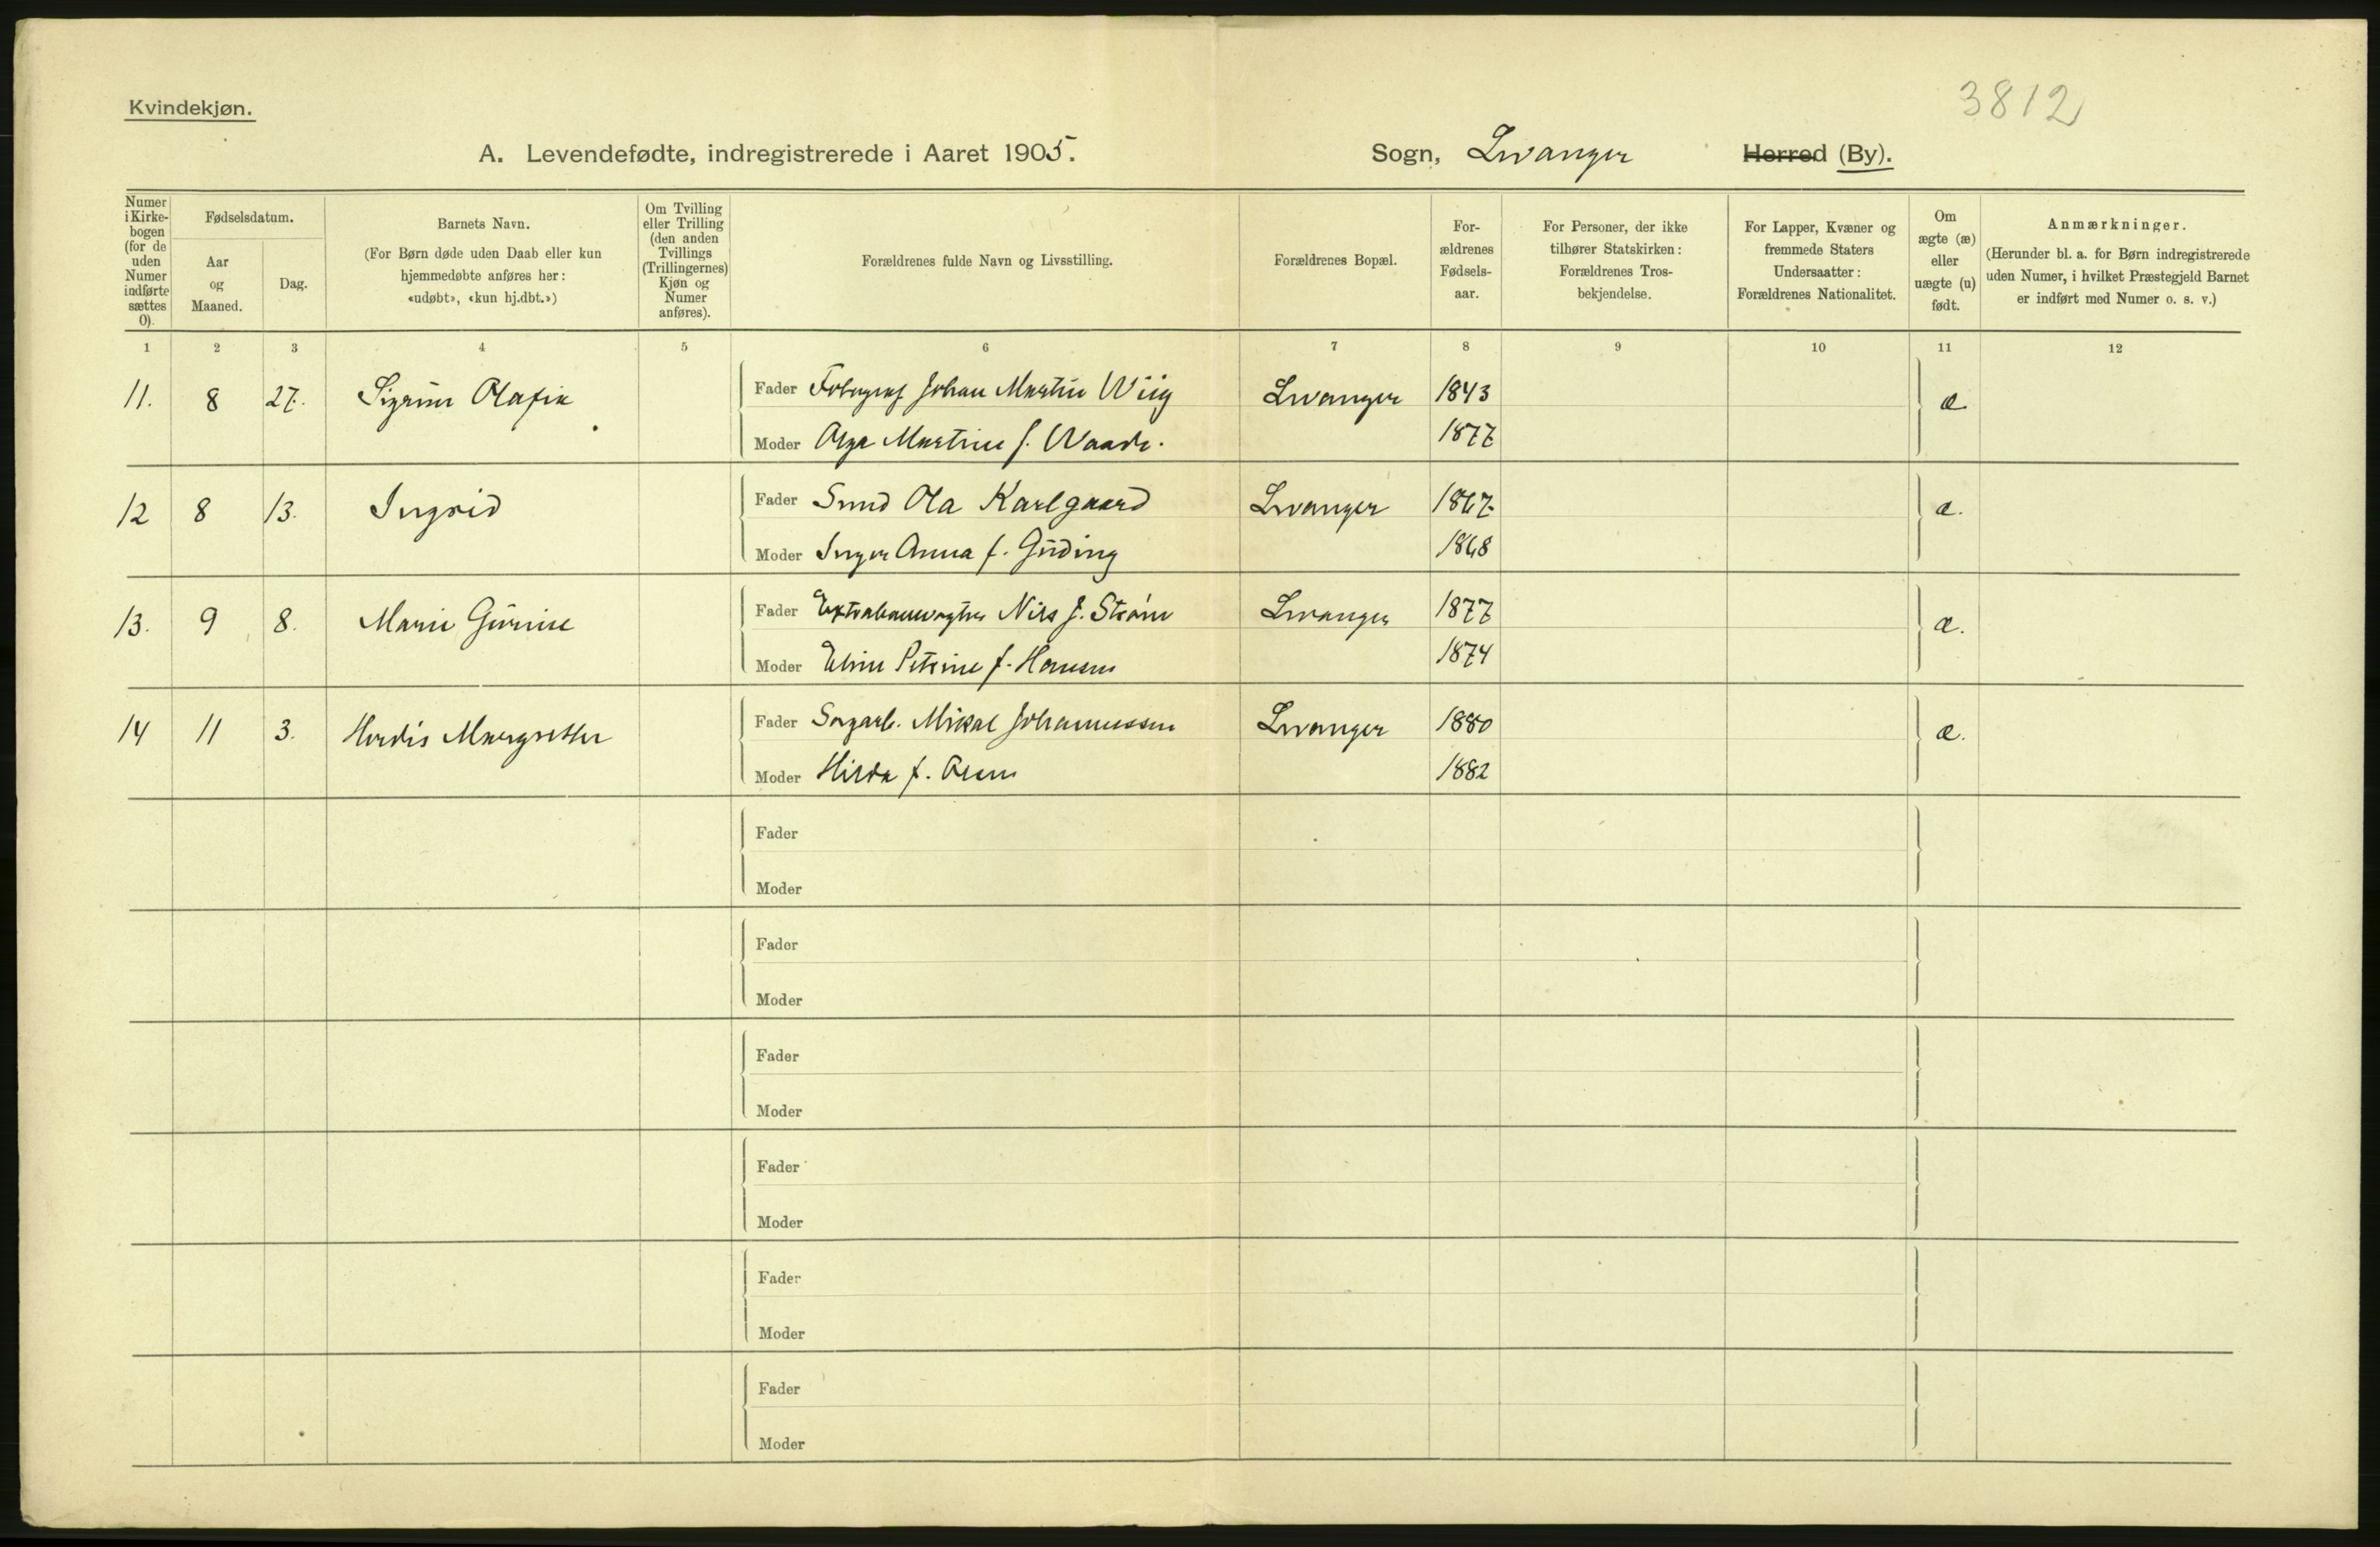 Kvindekjøn.
3812
A. Levendefødte, indregistrerede i Aaret 1905. Sogn, Levanger Herred (By).
Numer i Kirkebogen (for de uden Numer indførte sættes 0).
Fødselsdatum.
Aar og Maaned.
Dag.
Barnets Navn.
(For Børn døde uden Daab eller kun hjemmedøbte anføres her: «udøbt», «kun hj.dbt.»)
Om Tvilling eller Trilling (den anden Tvillings (Trillingernes) Kjøn og Numer anføres).
Forældrenes fulde Navn og Livsstilling.
Forældrenes Bopæl.
For-
ældrenes
Fødsels-
aar.
For Personer, der ikke
tilhører Statskirken:
Forældrenes Tros-
bekjendelse.
For Lapper, Kvæner og
fremmede Staters
Undersaatter:
Forældrenes Nationalitet.
Om
ægte (æ)
eller
uægte (u)
født.
Anmærkninger.
(Herunder bl. a. for Børn indregistrerede
uden Numer, i hvilket Præstegjeld Barnet
er indført med Numer o. s. v.)
1 2 3 4 5 6 7 8 9 10 11 12
11. 8 27. Sigrun Olafia Fader Fotograf Johan Martin Wiig Levanger 1843 æ
Moder Olga Martine f. Waade. 1877
12 8 13. Ingrid Fader Smed Ola Karlgaard Levanger 1867. æ.
Moder Inger Anna f. Güding 1868
13. 9 8. Marie Gurine Fader Extrabanevogter Nils J. Strøm Levanger 1877 æ.
Moder Eline Petrine f. Hansen 1874
14 11 3. Herdis Margrethe Fader Sagarb. Mikal Johannessen Levanger 1880 æ.
Moder Hilda f. Olsen 1882
Fader
Moder
Fader
Moder
Fader
Moder
Fader
Moder
Fader
Moder
Fader
Moder